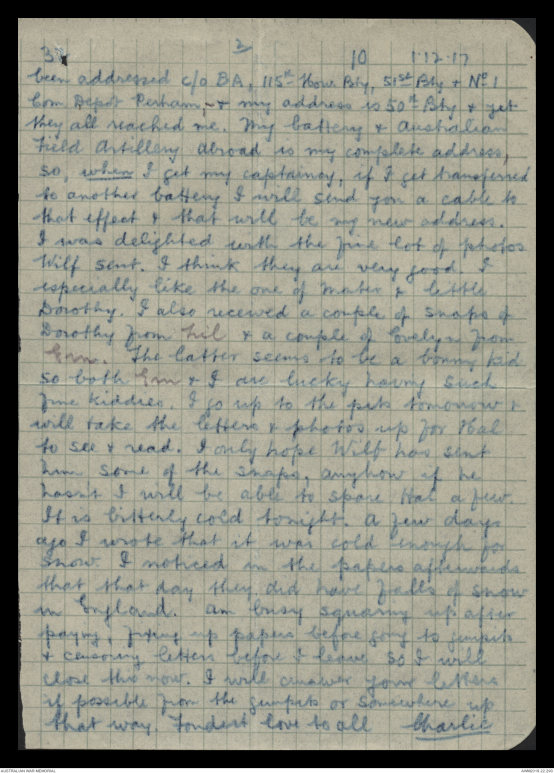 3 2 10 1.12.17
been addressed c/o BA, 115th How Bty, 51st Bty + No 1
Com Depot Perham, - + my address is 50th Bty & yet
they all reached me. My battery & Australian
Field Artillery abroad is my complete address,
so, when I get my captaincy, if I get transferred
to another battery I will send you a cable to
that effect & that will be my new address.
I was delighted with the fine lot of photos
Wilf sent. I think they are very good. I
especially like the one of Mater & little
Dorothy. I also received a couple of snaps of
Dorothy from Lil & a couple of Evelyn from
Ern. The latter seems to be a bonny kid
so both Ern & I are lucky having such
fine kiddies. I go up to the pits tomorrow &
will take the letters & photos up for Hal
to see & read. I only hope Wilf has sent
him some of the snaps, anyhow if he
hasnt I will be able to spare Hal a few.
It is bitterly cold tonight. A few days
ago I wrote that it was cold enough for
snow. I noticed in the papers afterwards
that that day they did have falls of snow
in England. Am busy squaring up after
paying, fixing up papers before going to gunpits
& censoring letters before I leave so I will
close this now. I will answer your letters
if possible from the gunpits or somewhere up
that way. Fondest love to all Charlie
AUSTRALIAN WAR MEMORIAL